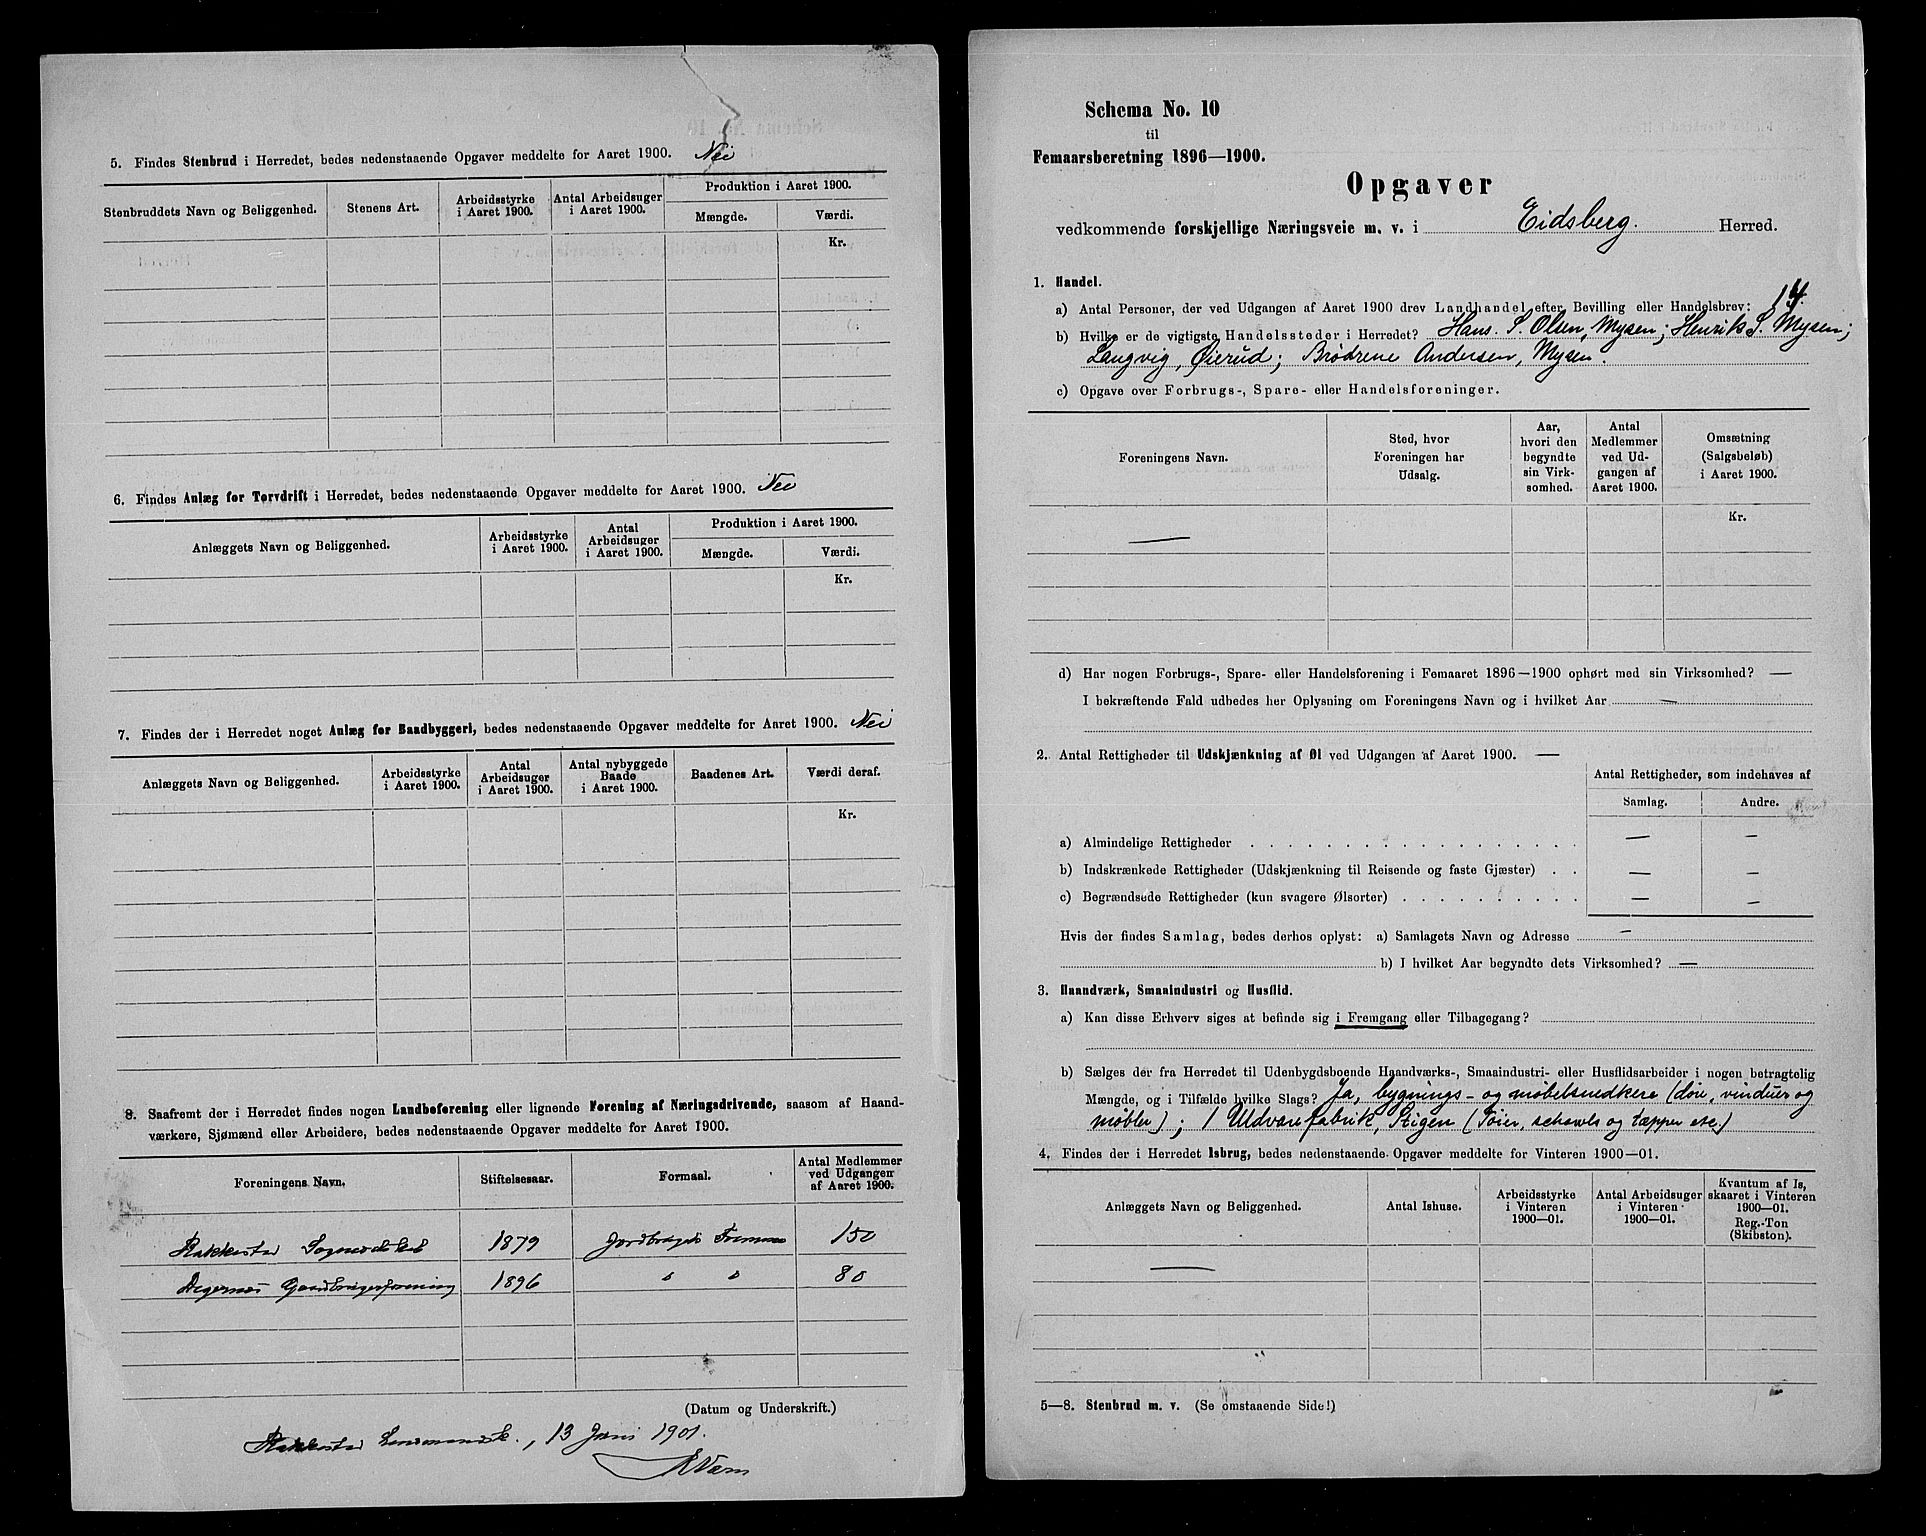 5. Findes Stenbrud i Herredet, bedes nedenstaaende Opgaver meddelte for Aaret 1900. Nei
Stenbruddets Navn og Beliggenhed. Stenens Art. Arbeidsstyrke i Aaret 1900. Antal Arbeidsuger i Aaret 1900. Produktion i Aaret 1900.
Mængde. Værdi.
Kr.
6. Findes Anlæg for Tørvdrift i Herredet, bedes nedenstaaende Opgaver meddelte for Aaret 1900. Nei
Anlæggets Navn og Beliggenhed. Arbeidsstyrke i Aaret 1900. Antal Arbeidsuger i Aaret 1900. Produktion i Aaret 1900.
Mængde. Værdi.
Kr.
7. Findes der i Herredet noget Anlæg for Baadbyggeri, bedes nedenstaaende Opgaver meddelte for Aaret 1900. Nei
Anlæggets Navn og Beliggenhed. Arbeidsstyrke i Aaret 1900. Antal Arbeidsuger i Aaret 1900. Antal nybyggede Baade i Aaret 1900. Baadenes Art. Værdi deraf.
Kr.
8. Saafremt der i Herredet findes nogen Landboforening eller lignende Forening af Næringsdrivende, saasom af Haand-
værkere, Sjømænd eller Arbeidere, bedes nedenstaaende Opgaver meddelte for Aaret 1900.
Foreningens Navn. Stiftelsesaar. Formaal. Antal Medlemmer ved Udgangen af Aaret 1900.
Rakkestad Sogneselskab 1879 Jordbrugets Fremme 150
Degernes Gaardbrugerforening 1896 " " 80
(Datum og Underskrift.)
Rakkestad 13 Juni 1901.
Schema No. 10
til
Femaarsberetning 1896—1900.
Opgaver
vedkommende forskjellige Næringsveie m. v. i Eidsberg. Herred.
1. Handel.
a) Antal Personer, der ved Udgangen af Aaret 1900 drev Landhandel efter Bevilling eller Handelsbrev: 14.
b) Hvilke er de vigtigste Handelssteder i Herredet? Hans S. Olsen, Mysen; Henrik S. Mysen;
Langvig, Øierud; Brødrene Andersen, Mysen.
c) Opgave over Forbrugs-, Spare- eller Handelsforeninger.
Foreningens Navn. Sted, hvor Foreningen har Udsalg. Aar, hvori den begyndte sin Virk- somhed. Antal Medlemmer ved Ud- gangen af Aaret 1900. Omsætning (Salgsbeløb) i Aaret 1900.
Kr.
—
d) Har nogen Forbrugs-, Spare- eller Handelsforening i Femaaret 1896—1900 ophørt med sin Virksomhed? —
I bekræftende Fald udbedes her Oplysning om Foreningens Navn og i hvilket Aar —
2. Antal Rettigheder til Udskjænkning af Øl ved Udgangen af Aaret 1900. —
Antal Rettigheder, som indehaves af
Samlag. Andre.
a) Almindelige Rettigheder — —
b) Indskrænkede Rettigheder (Udskjænkning til Reisende og faste Gjæster) — —
c) Begrændsede Rettigheder (kun svagere Ølsorter) — —
Hvis der findes Samlag, bedes derhos oplyst: a) Samlagets Navn og Adresse —
b) I hvilket Aar begyndte dets Virksomhed? —
3. Haandværk, Smaaindustri og Husflid.
a) Kan disse Erhverv siges at befinde sig i Fremgang eller Tilbagegang?
b) Sælges der fra Herredet til Udenbygdsboende Haandværks-, Smaaindustri- eller Husflidsarbeider i nogen betragtelig
Mængde, og i Tilfælde hvilke Slags? Ja, bygnings- og møbelsnedkere (døre, vinduer og
møbler); 1 Uldvarefabrik, Stigen (Tøier, schawls og tæpper etc.)
4. Findes der i Herredet Isbrug, bedes nedenstaaende Opgaver meddelte for Vinteren 1900—01.
Anlæggets Navn og Beliggenhed. Antal Ishuse. Arbeidsstyrke i Vinteren 1900—01. Antal Arbeidsuger i Vinteren 1900—01. Kvantum af Is, skaaret i Vinteren 1900—01. Reg.-Ton (Skibston).
—
5—8. Stenbrud m. v. (Se omstaaende Side!)